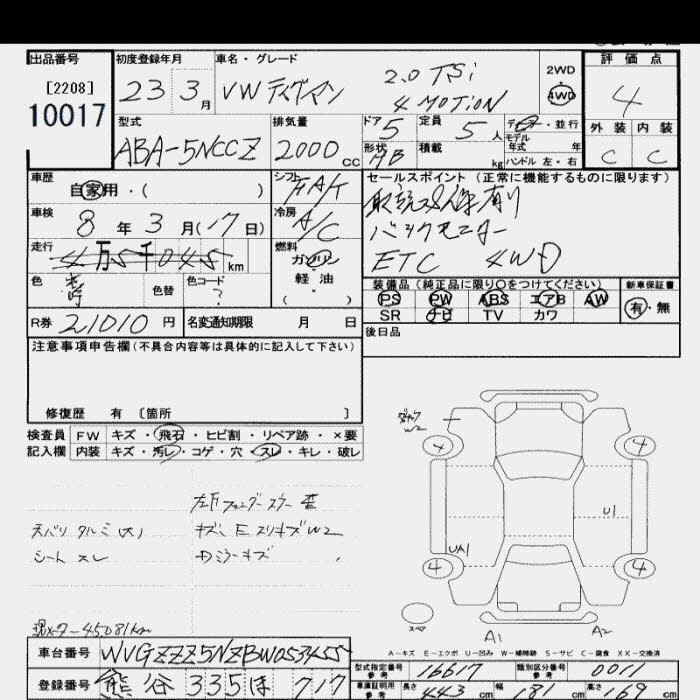 出品番号 初度登録年月 車名・グレード 評価点
[2208]
10017
23 3 月 VW ティグアン 2.0 TSi
4 MOTiON
2WD
4WD
4
外装 内装
C C
型式 排気量 ドア 5 定員 5 人 ディーラー・並行
モデル年式 年式
ABA-5NCCZ 2000 CC 形状 HB 積載 kg ハンドル 左・右
車歴 自家用・( ) シフト FAT
車検 8 年 3 月(17日) 冷房 A/C
走行 4万5千045 km 燃料 ガソリン・軽油
色 色替 色コード ?
R券 21010 円 名変通知期限 月 日
セールスポイント (正常に機能するものに限ります)
取説 有り
バックモニター
ETC 4WD
装備品 (純正品に限り○をつけてください) 新車保証書
PS PW ABS エアB AW 有・無
SR ナビ TV カワ
後日品
注意事項申告欄(不具合内容等は具体的に記入して下さい)
修復歴 有 〔箇所 〕
検査員 FW キズ・飛石・ヒビ割・リペア跡・×要
記入欄 内装 キズ・汚レ・コゲ・穴・スレ・キレ・破レ
天バリ タルミ(大)
シート スレ
左Fフェンダー
キズ E スリキズW2
ミラーキズ
W2
4 4
4 4
U1
UA1
スペア
A1 A2
現メーター 45081km
A-キズ E-エクボ U-凹み W-補修跡 S-サビ C-腐食 XX-交換済
車台番号 WVGZZZ5NZBW053455
登録番号 熊谷 335 ほ 717
型式指定番号 参考 16617 類別区分番号 参考 0011
車庫証明用 参考 長さ 443 cm 幅 181 cm 高さ 169 cm